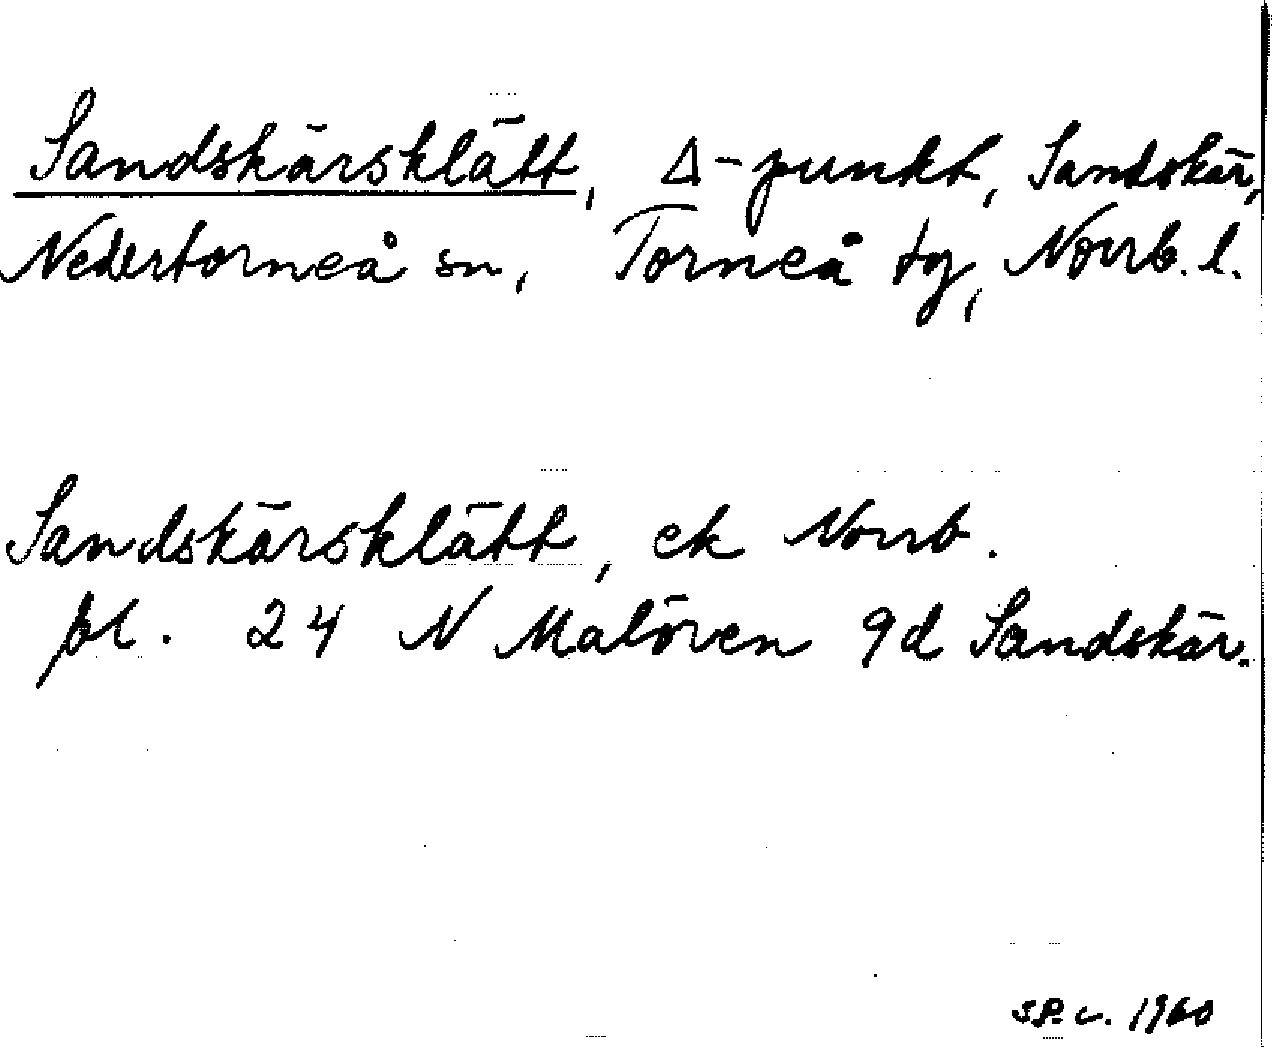 Sandskärsklätt, Δ-punkt, Sandskär,
Nedertorneå sn, Torneå tg, Norrb. l.
Sandskärsklätt, ek Norrb.
bl. 24 N Malören 9d Sandskär.
S.P. c. 1960